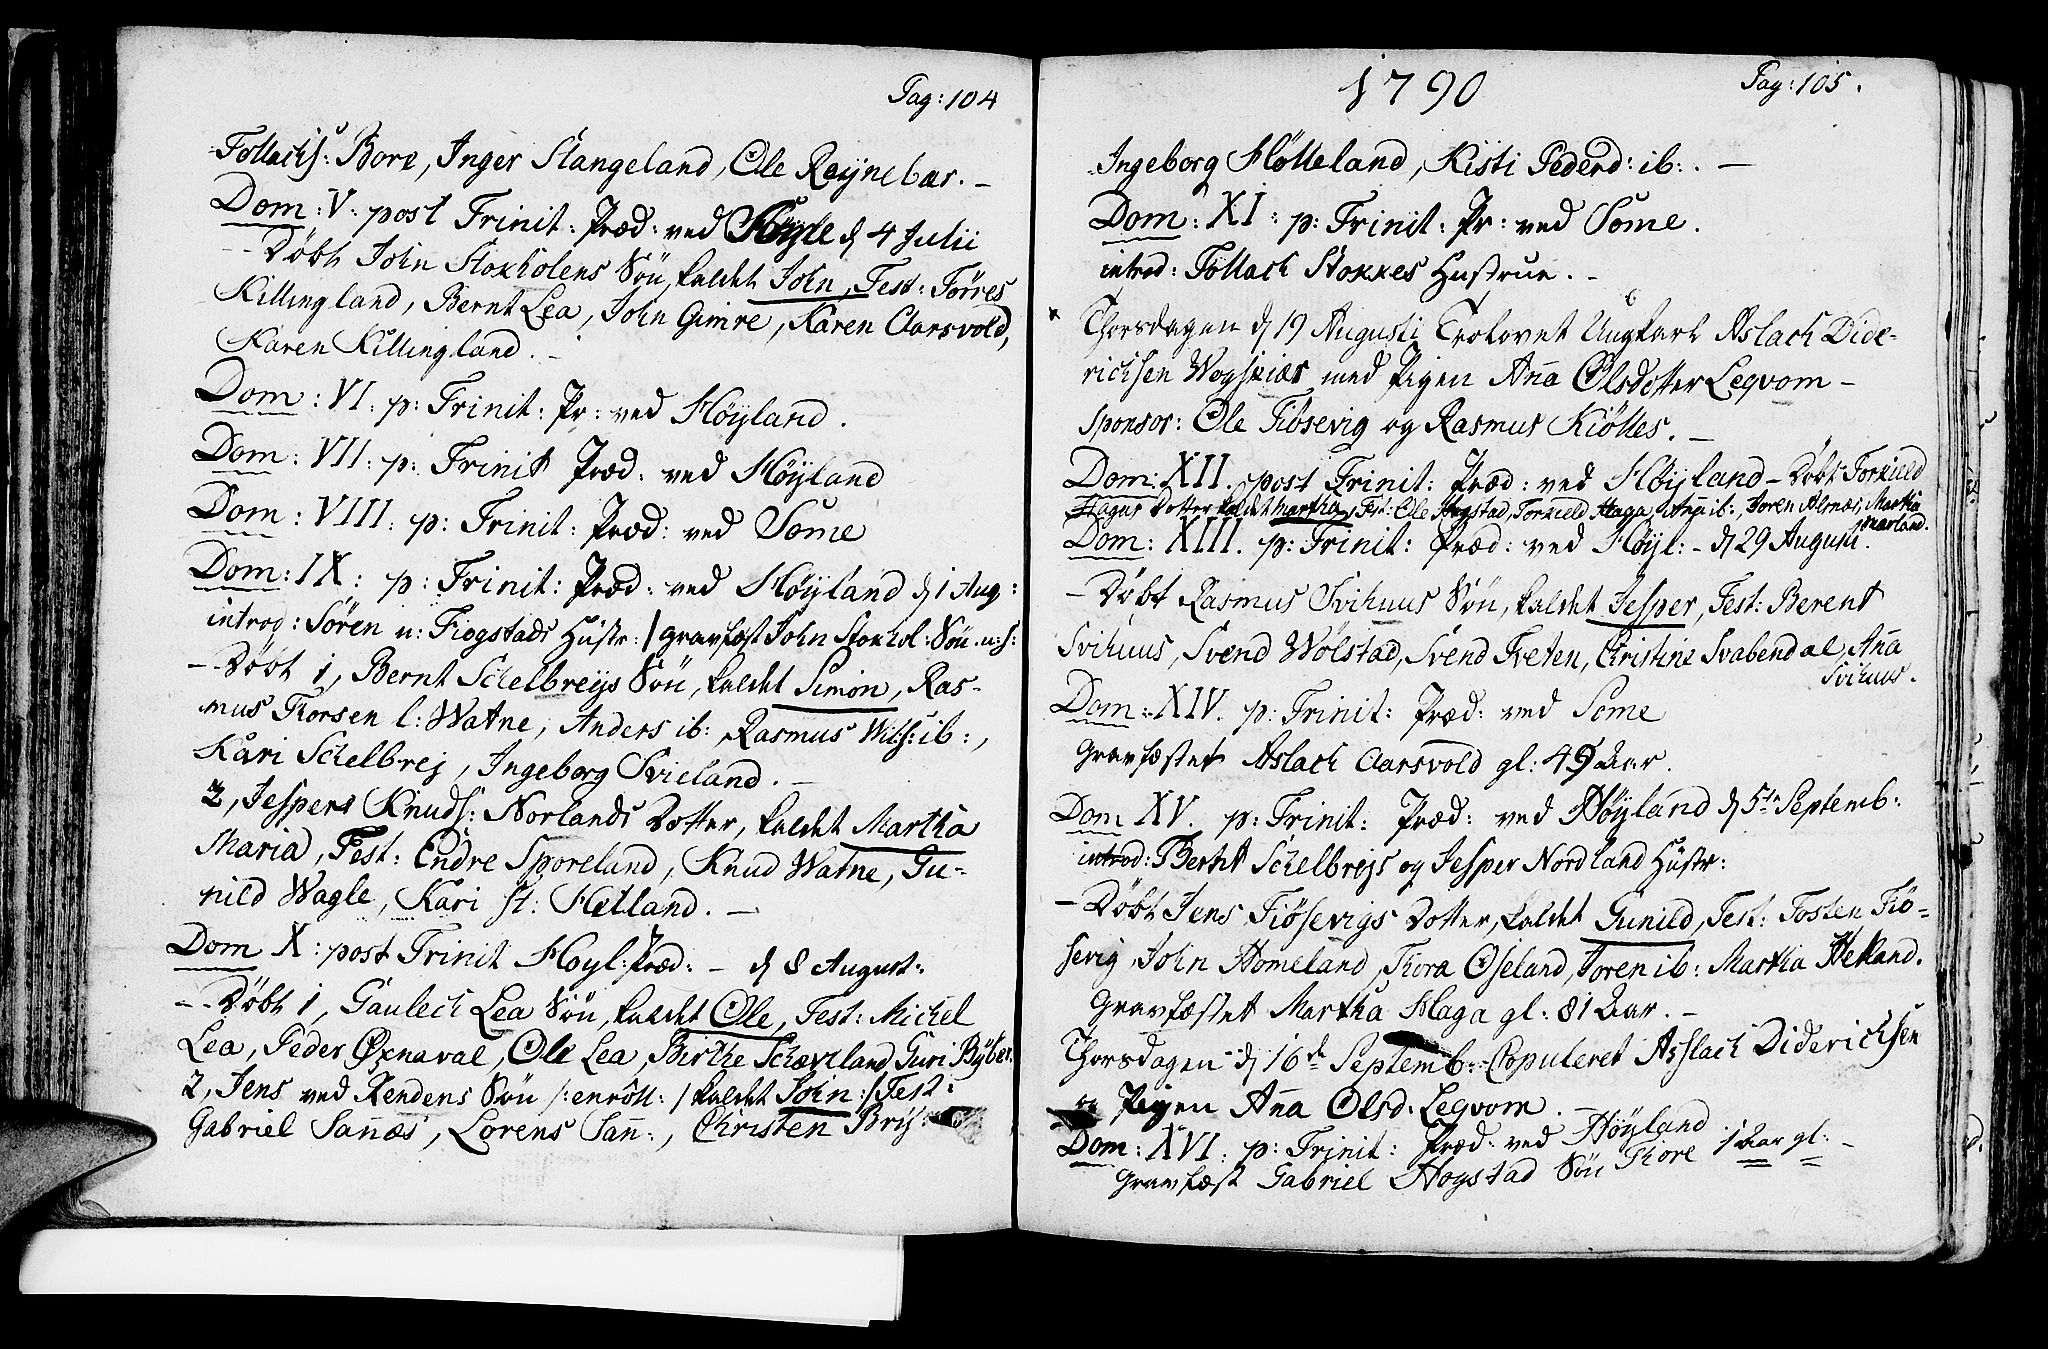 Pag: 104
Tollachs: Bore, Inger Stangeland, Ole Reynebær. –
Dom: V: post Trinit: Præd: ved Høyle d 4 Julii
– Döbt John Stokholens Sön, kaldet John, Test: Törres
Killingland, Bernt Lea, John Gimre, Karen Aarsvold,
Karen Killingland. –
Dom: VI: p: Trinit: Pr: ved Höyland.
Dom: VII: p: Trinit Præd: ved Höyland
Dom: VIII: p: Trinit: Præd: ved Some
Dom: IX: p: Trinit: Præd: ved Höyland d 1 Aug:
introd: Sören u: Hogstads Hustr: / gravfæst John Stokhol: Sön u: s:
– Döbt 1, Bernt Schelbreijs Sön, kaldet Simon, Ras-
mus Thorsen l: Watne, Anders ib: Rasmus Wils: ib:,
Kari Schelbrej, Ingeborg Svieland. –
2, Jespers Knuds: Norlands Dotter, kaldet Martha
Maria, Test: Endre Sporeland, Knud Watne, Gu-
nild Wagle, Kari st: Hetland. –
Dom X: post Trinit Hoyl: Præd: – d 8 August:
– Döbt 1, Gaulech Lea Sön, kaldet Ole, Test: Michel
Lea, Peder Øxnaval, Ole Lea, Birthe Schæveland, Guri Bÿber.
2, Jens ved Rendens Sön /: enröll: / kaldet John :/ Test:
Gabriel Sanæs, Lorens San:, Christen Bris:
1790
Pag: 105.
Ingeborg Hölleland, Kisti Pederd: ib:. –
Dom: XI: p: Trinit: Pr: ved Some.
introd: Tollach Stokkes Hustrue. –
Thorsdagen d 19 Augusti Trolovet Ungkarl Aslach Dide-
richsen Wogskiær med Pigen Ana Olsdotter Leqvom –
sponsor: Ole Fiösevig og Rasmus Kiölles. –
Dom: XII. post Trinit: Præd: ved Höyland – Döbt Torkield
Hagas Dotter kaldet Martha, Test: Ole Hogstad, Torkield Haga, Ana ib:, Soren Alsnæs, Martha
Marland.
Dom: XIII. p: Trinit: Præd: ved Höyl: – d 29 Augusti.
– Döbt Rasmus Svihuus Sön, kaldet Jesper, Test: Berent
Svihuus, Svend Wölstad, Svend Tveten, Christine Svabendal, Ana
Svihuus.
Dom: XIV. p: Trinit: Præd: ved Some
Gravfæstet Aslach Aarsvold gl: 49 Aar.
Dom XV. p: Trinit: Præd: ved Höyland d 5te Septemb:
introd: Bernt Schelbrejs og Jesper Nordland Hustr:
– Döbt Jens Fiösevigs Dotter, kaldet Gunild, Test: Tosten Fiö-
sevig, John Homeland, Thora Oseland, Toren ib: Martha Hetland.
Gravfæstet Martha Haga gl: 81 Aar. –
Thorsdagen d 16de Septemb: Copuleret Asslach Diderichsen
og Pigen Ana Olsd: Leqvom. –
Dom: XVI: p: Trinit: Præd: ved Höyland
Gravfæst Gabriel Hogstad Sön Thore 1 Aar gl: –